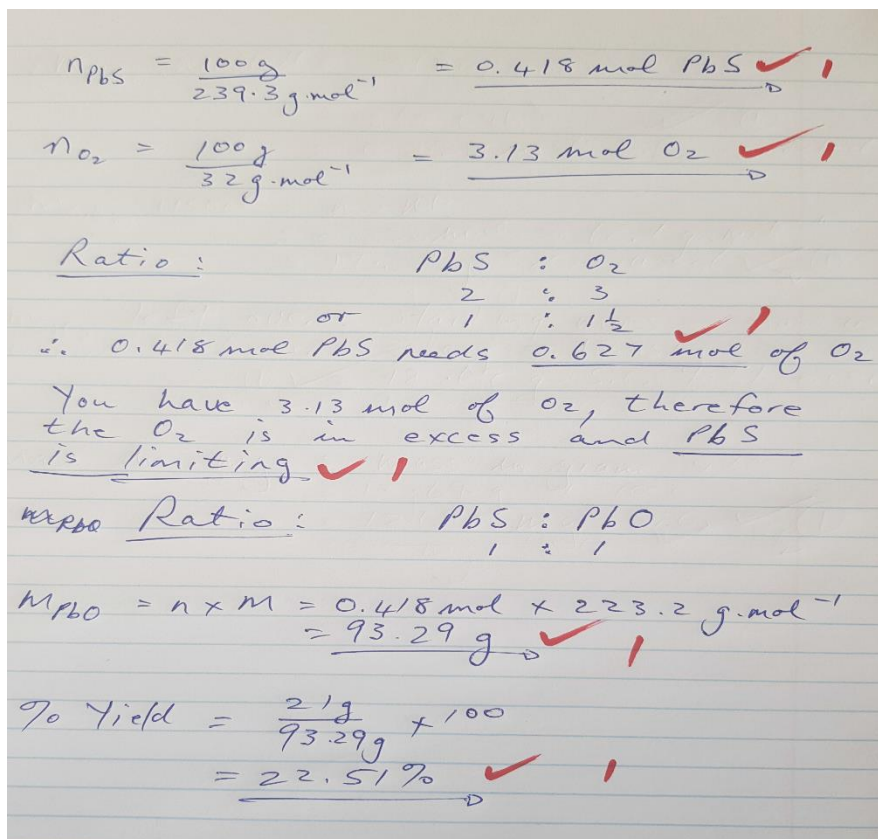 nPbS = 100g / 239.3 g.mol⁻¹ = 0.418 mol PbS ✓ 1
nO2 = 100g / 32 g.mol⁻¹ = 3.13 mol O2 ✓ 1
Ratio: PbS : O2
2 : 3
or 1 : 1½ ✓ 1
∴ 0.418 mol PbS needs 0.627 mol of O2
You have 3.13 mol of O2, therefore
the O2 is in excess and PbS
is limiting ✓ 1
Ratio: PbS : PbO
1 : 1
MPbO = n x M = 0.418 mol x 223.2 g.mol⁻¹
= 93.29 g ✓ 1
% Yield = 21g / 93.29g + 100
= 22.51% ✓ 1